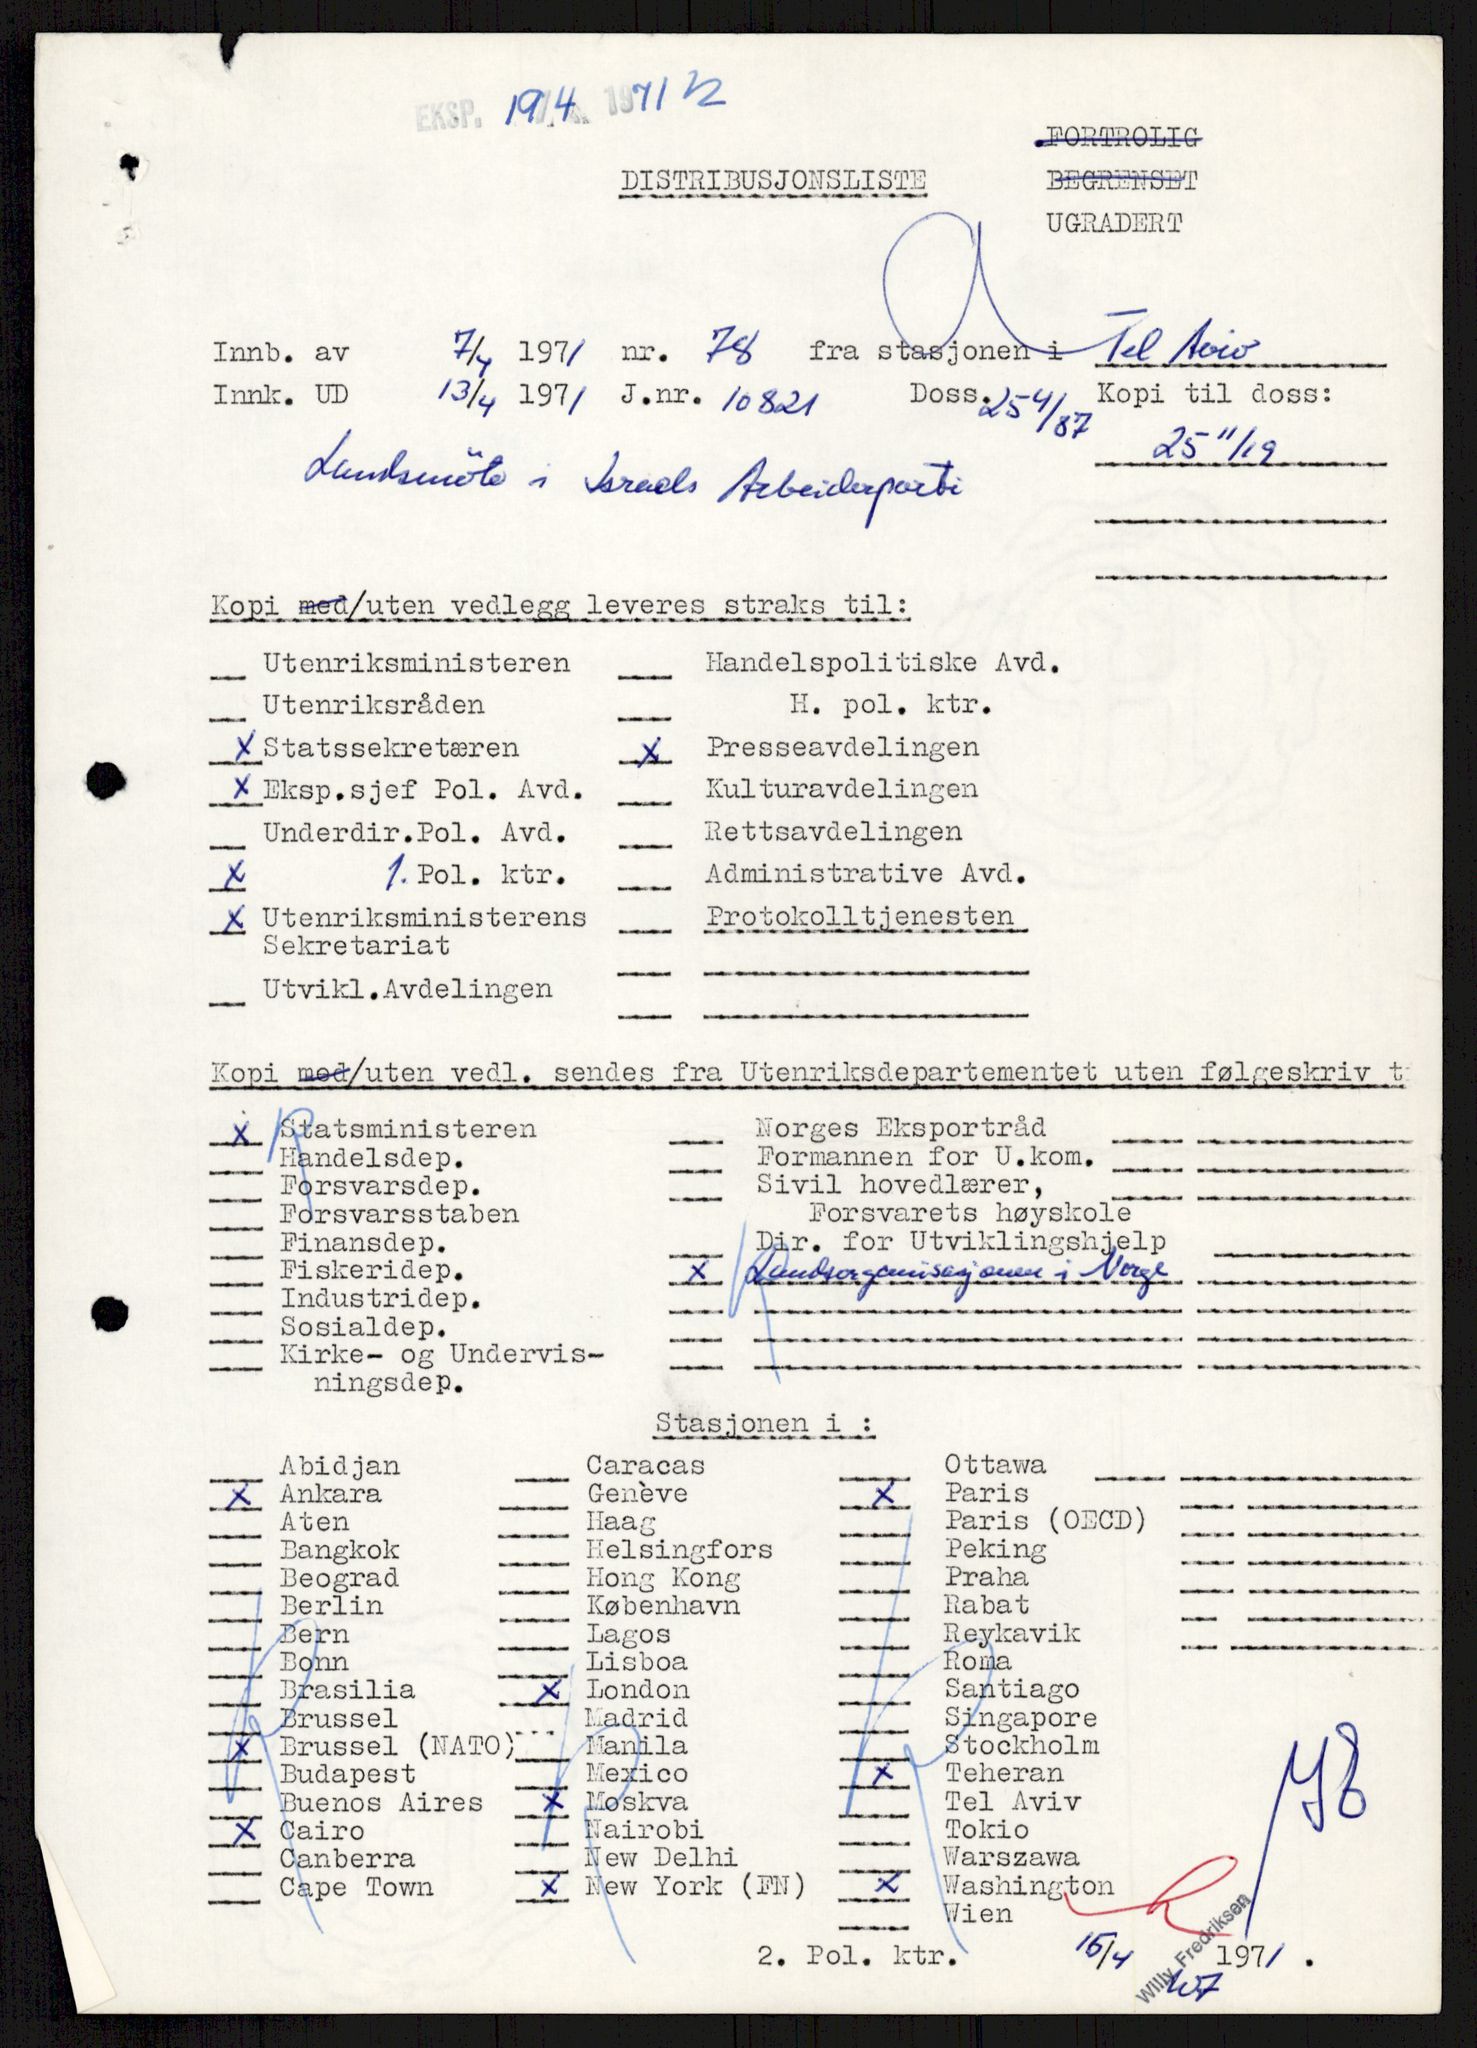 EKSP. 19/4 1971
FORTROLIG
DISTRIBUSJONSLISTE
BEGRENSET
UGRADERT
Innb. av 7/4 1971 nr. 78 fra stasjonen i Tel Aviv
Innk. UD 13/4 1971 J.nr. 10821 Doss. 25 4/87 Kopi til doss:
25 11/19
Landsmöte i Israels Arbeiderparti
Kopi med/uten vedlegg leveres straks til:
Utenriksministeren Handelspolitiske Avd.
Utenriksråden H. pol. ktr.
x Statssekretæren x Presseavdelingen
x Eksp.sjef Pol. Avd. Kulturavdelingen
Underdir.Pol. Avd. Rettsavdelingen
x 1. Pol. ktr. Administrative Avd.
x Utenriksministerens Protokolltjenesten
Sekretariat
Utvikl.Avdelingen
Kopi med/uten vedl. sendes fra Utenriksdepartementet uten følgeskriv t
x Statsministeren Norges Eksportråd
Handelsdep. Formannen for U.kom.
Forsvarsdep. Sivil hovedlærer,
Forsvarsstaben Forsvarets høyskole
Finansdep. Dir. for Utviklingshjelp
Fiskeridep. x Landsorganisasjonen i Norge
Industridep.
Sosialdep.
Kirke- og Undervis-
ningsdep.
Stasjonen i :
Abidjan Caracas Ottawa
x Ankara Genève x Paris
Aten Haag Paris (OECD)
Bangkok Helsingfors Peking
Beograd Hong Kong Praha
Berlin København Rabat
Bern Lagos Reykavik
Bonn Lisboa Roma
Brasilia x London Santiago
Brussel Madrid Singapore
x Brussel (NATO) Manila Stockholm
Budapest Mexico x Teheran
Buenos Aires x Moskva Tel Aviv
x Cairo Nairobi Tokio
Canberra New Delhi Warszawa
Cape Town x New York (FN) x Washington
Wien
2. Pol. ktr. 15/4 1971.
Willy Fredriksen